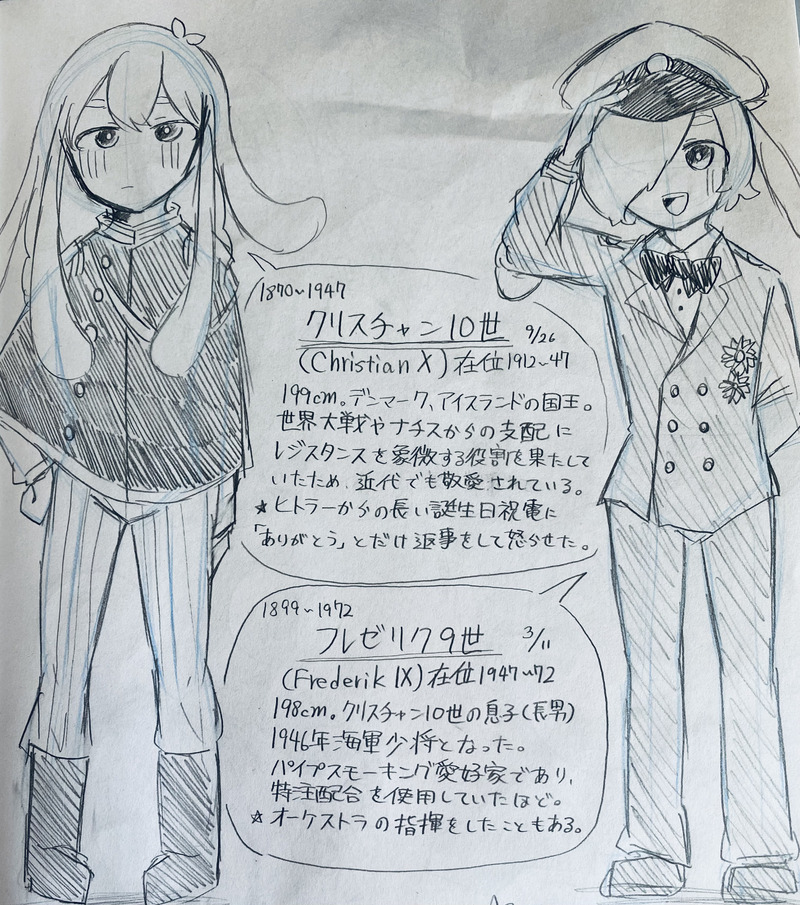 1870~1947
クリスチャン10世 9/26
(Christian X) 在位1912~47
199cm。デンマーク、アイスランドの国王。
世界大戦やナチスからの支配に
レジスタンスを象徴する役割を果たして
いたため、近代でも敬愛されている。
☆ヒトラーからの長い誕生日祝電に
「ありがとう」とだけ返事をして怒らせた。
1899~1972
フレゼリク9世 3/11
(Frederik IX) 在位1947~72
198cm。クリスチャン10世の息子(長男)
1946年海軍少将となった。
パイプスモーキング愛好家であり、
特注配合を使用していたほど。
☆オーケストラの指揮をしたこともある。